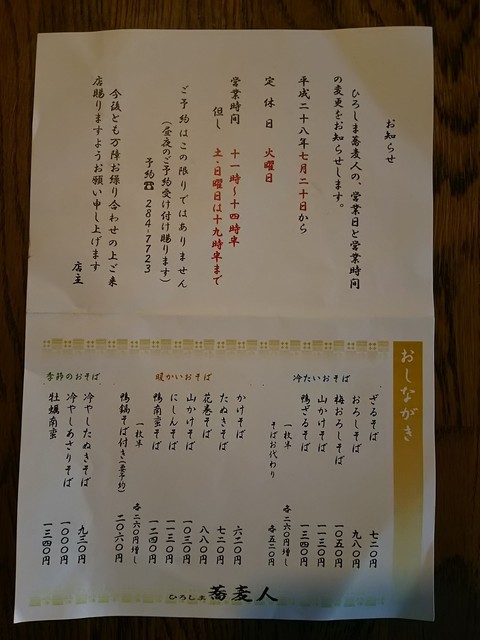 お知らせ
ひろしま蕎麦人の、営業日と営業時間
の変更をお知らせします。
平成二十八年七月二十日から
定休日　火曜日
営業時間　十一時～十四時半
但し　土・日曜日は十九時半まで
ご予約はこの限りではありません
（昼夜のご予約受け付け賜ります）
予約☎ 284-7723
今後とも万障お繰り合わせの上ご来
店賜りますようお願い申し上げます
店主
おしながき
冷たいおそば
ざるそば　七二〇円
おろしそば　九八〇円
梅おろしそば　一〇五〇円
山かけそば　一一三〇円
鴨ざるそば　一三四〇円
一枚半　各二六〇円増し
そばお代わり　各五二〇円
暖かいおそば
かけそば　六二〇円
たぬきそば　七二〇円
花巻そば　八八〇円
山かけそば　一〇三〇円
にしんそば　一一三〇円
鴨南蛮そば　一二四〇円
一枚半　各二六〇円増し
鴨鍋そば付き（要予約）　二〇六〇円
季節のおそば
冷やしたぬきそば　九三〇円
冷やしあさりそば　一〇〇〇円
牡蠣南蛮　一三四〇円
ひろしま 蕎麦人